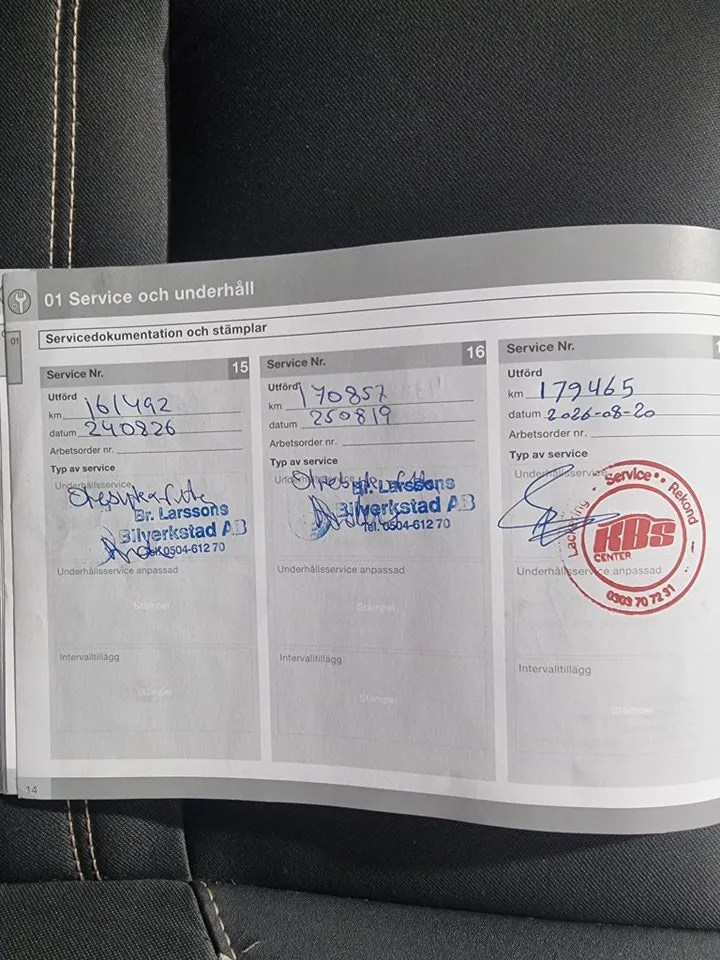 01 Service och underhåll
01
Servicedokumentation och stämplar
Service Nr. 15
Utförd
km 161492
datum 240826
Arbetsorder nr.
Typ av service
Underhållsservice
Br. Larssons
Bilverkstad AB
0504-612 70
Underhållsservice anpassad
Stämpel
Intervalltillägg
Stämpel
Service Nr. 16
Utförd
km 170857
datum 250819
Arbetsorder nr.
Typ av service
Br. Larssons
Bilverkstad AB
Tel. 0504-612 70
Underhållsservice anpassad
Stämpel
Intervalltillägg
Stämpel
Service Nr.
Utförd
km 179465
datum 2026-08-20
Arbetsorder nr.
Typ av service
Underhållsservice
Service • Rekond
KBS
CENTER
0303 70 72 31
Underhållsservice anpassad
Intervalltillägg
Stämpel
14